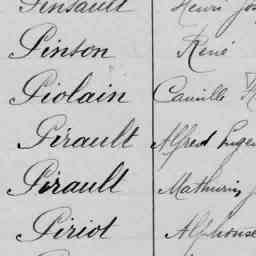 Pinsault Henri
Pinson René
Piolain Camille
Pérault Alfred
Pérault Mathurin
Périot Alphonse